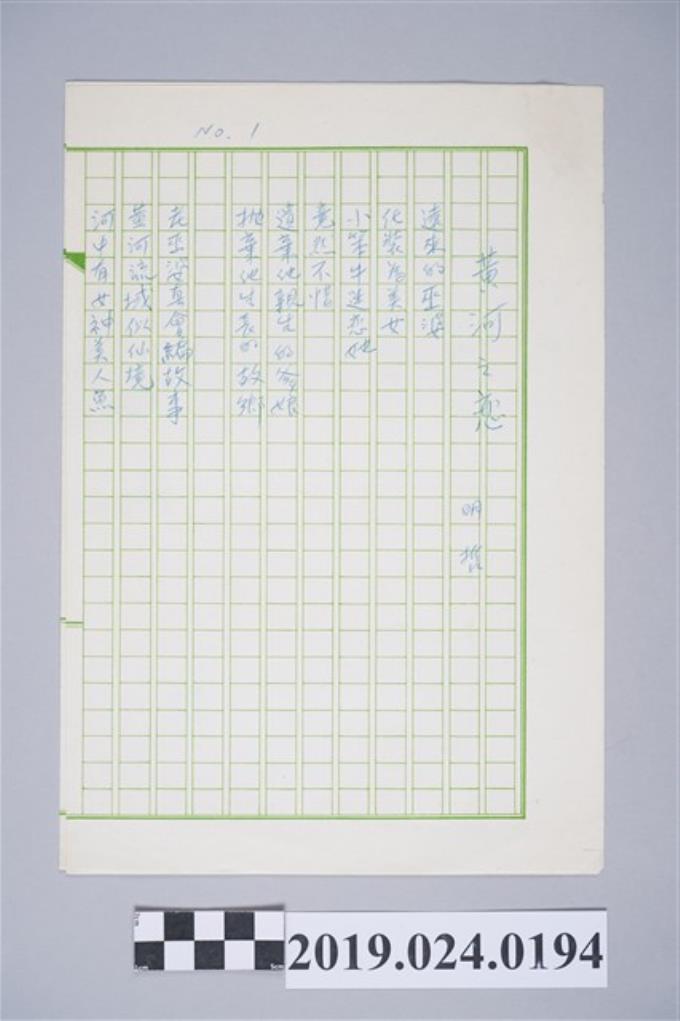 No. 1
黃河之戀
明哲
遠來的巫婆
化裝為美女
小笨牛迷戀她
竟然不惜
遺棄他親生的爺娘
拋棄他生長的故鄉
老巫婆真會編故事
黃河流域似仙境
河中有女神美人魚
2019.024.0194